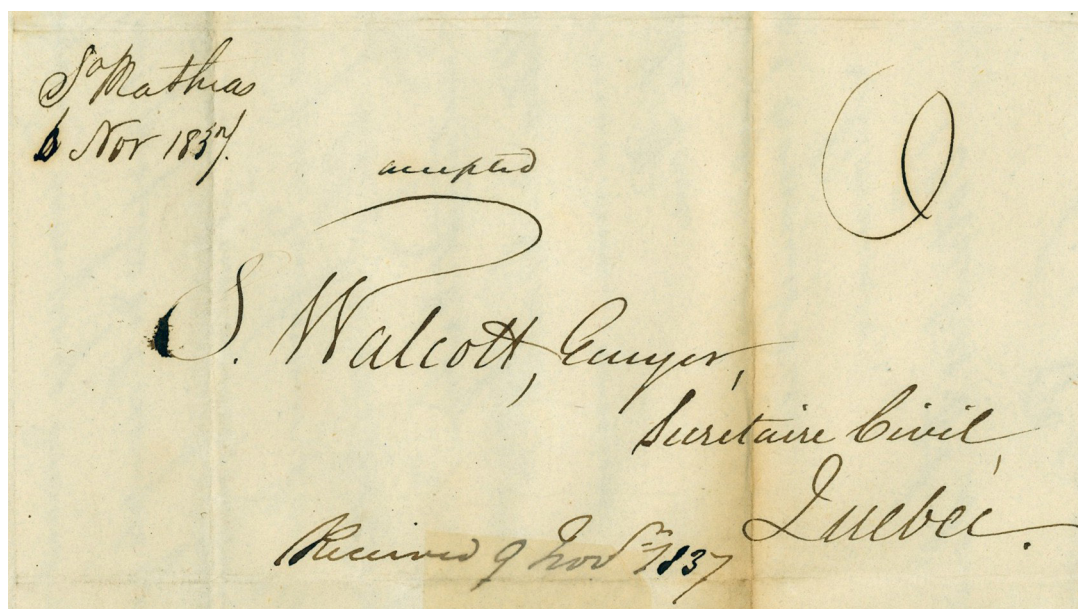 St Mathias
6 Nov 1837.
accepted
S. Walcott, Ecuyer,
Secretaire Civil,
Quebec.
Received 9 Novr 1837